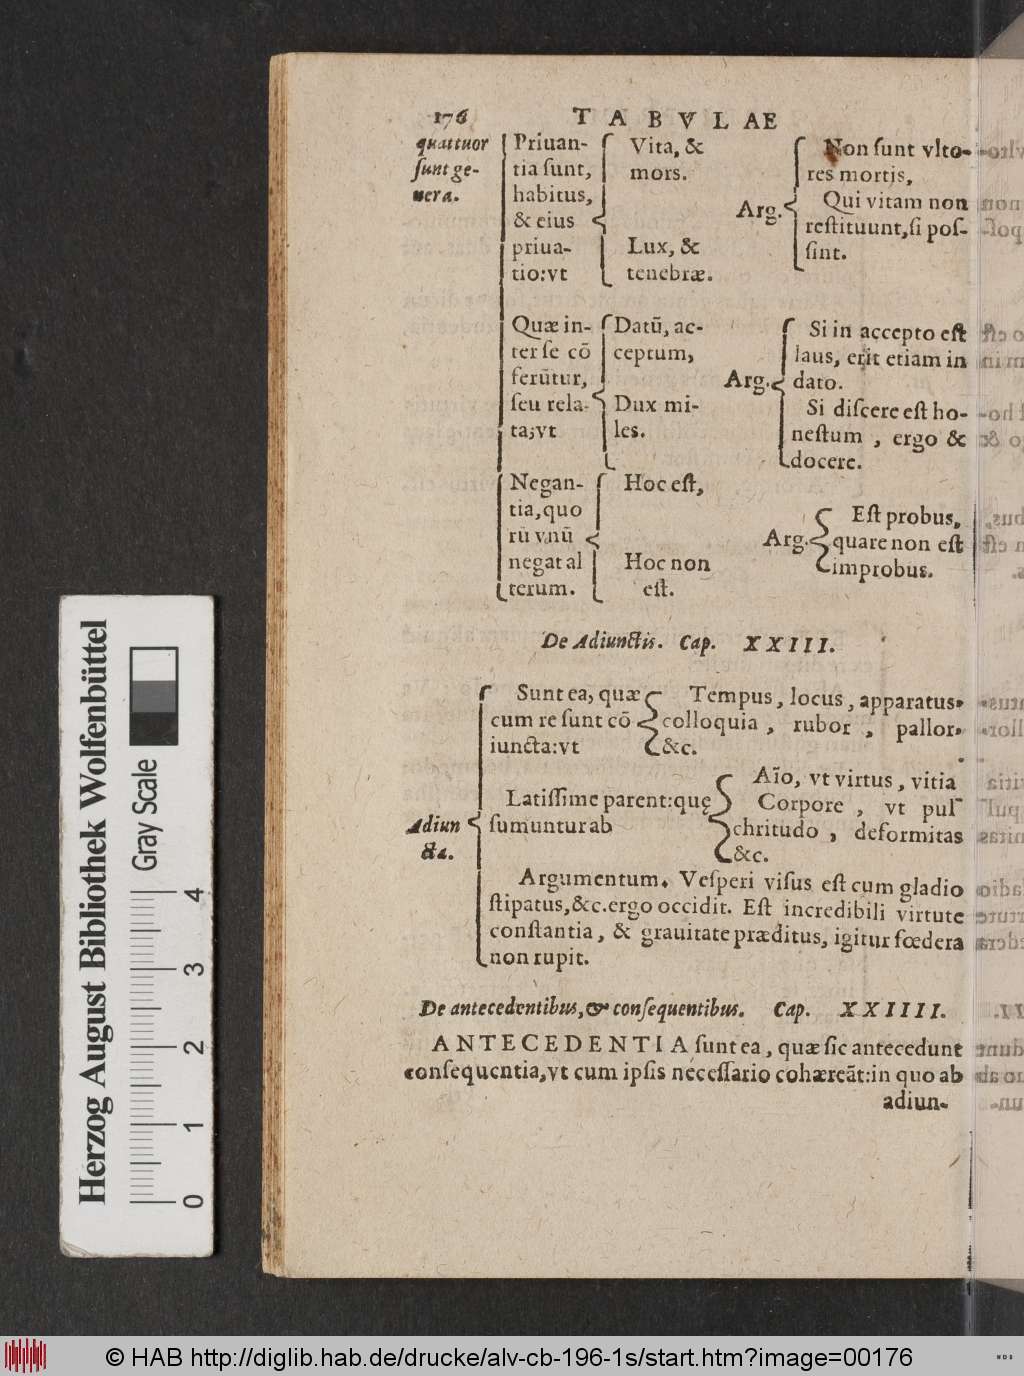 176 TABVLAE
quattuor
sunt ge-
nera.
Priuan-
tia sunt,
habitus,
& eius
priua-
tio:vt
Vita, &
mors.
Lux, &
tenebræ.
Arg.
Non sunt vlto-
res mortis,
Qui vitam non
restituunt, si pos-
sint.
Quæ in-
ter se cō
ferūtur,
seu rela-
ta;vt
Datū, ac-
ceptum,
Dux mi-
les.
Arg.
Si in accepto est
laus, erit etiam in
dato.
Si discere est ho-
nestum, ergo &
docere.
Negan-
tia, quo
rū vnū
negat al
terum.
Hoc est,
Hoc non
est.
Arg.
Est probus,
quare non est
improbus.
De Adiunctis. Cap. XXIII.
Adiun
cta.
Sunt ea, quæ
cum re sunt cō
iuncta:vt
Tempus, locus, apparatus,
colloquia, rubor, pallor,
&c.
Latissime parent:quę
sumuntur ab
Aīo, vt virtus, vitia
Corpore, vt pul
chritudo, deformitas
&c.
Argumentum. Vesperi visus est cum gladio
stipatus, &c. ergo occidit. Est incredibili virtute
constantia, & grauitate præditus, igitur fœdera
non rupit.
De antecedentibus, & consequentibus. Cap. XXIIII.
ANTECEDENTIA sunt ea, quæ sic antecedunt
consequentia, vt cum ipsis necessario cohæreāt:in quo ab
adiun-
Herzog August Bibliothek Wolfenbüttel
Gray Scale
0 1 2 3 4
© HAB http://diglib.hab.de/drucke/alv-cb-196-1s/start.htm?image=00176